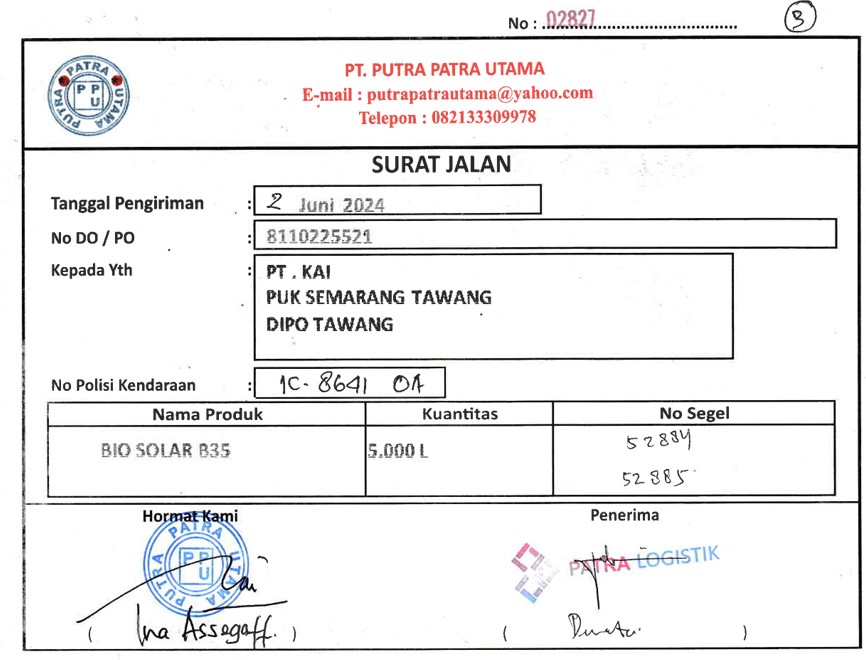 No : 02827
B
PUTRA PATRA UTAMA
PPU
PT. PUTRA PATRA UTAMA
E-mail : putrapatrautama@yahoo.com
Telepon : 082133309978
SURAT JALAN
Tanggal Pengiriman : 2 Juni 2024
No DO / PO : 8110225521
Kepada Yth : PT . KAI
PUK SEMARANG TAWANG
DIPO TAWANG
No Polisi Kendaraan : 1C- 8641 OA
Nama Produk Kuantitas No Segel
BIO SOLAR B35 5.000 L 52884
52885
Hormat Kami Penerima
PUTRA PATRA UTAMA
PPU
PATRA LOGISTIK
( Ina Assegaff. ) ( )